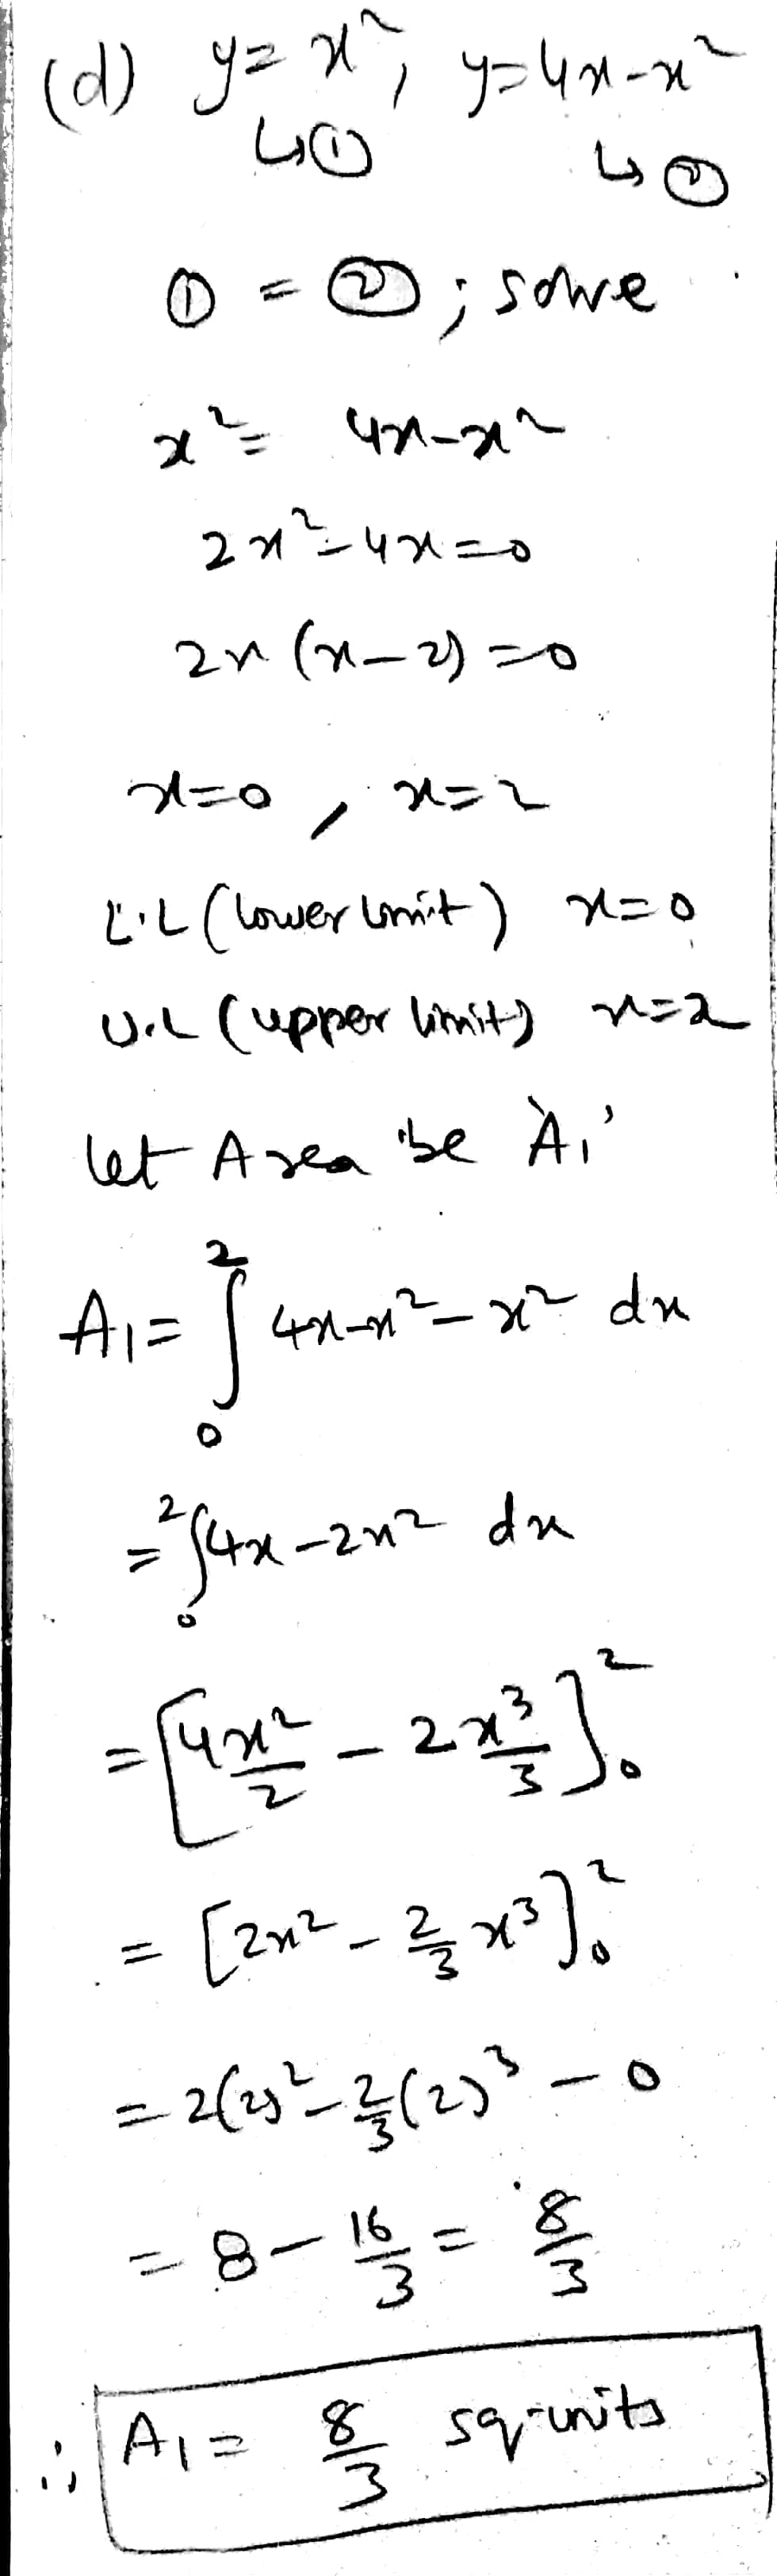 (d) y = x², y = 4x-x²
↳① ↳②
① = ② ; solve
x² = 4x-x²
2x²-4x=0
2x (x-2) =0
x=0 , x=2
L.L (lower limit) x=0
U.L (upper limit) x=2
let Area be 'A₁'
A₁ = ∫₀² 4x-x² - x² dx
= ∫₀² 4x - 2x² dx
= [4x²/2 - 2x³/3]₀²
= [2x² - 2/3 x³]₀²
= 2(2)² - 2/3 (2)³ - 0
= 8 - 16/3 = 8/3
∴ A₁ = 8/3 sq-units